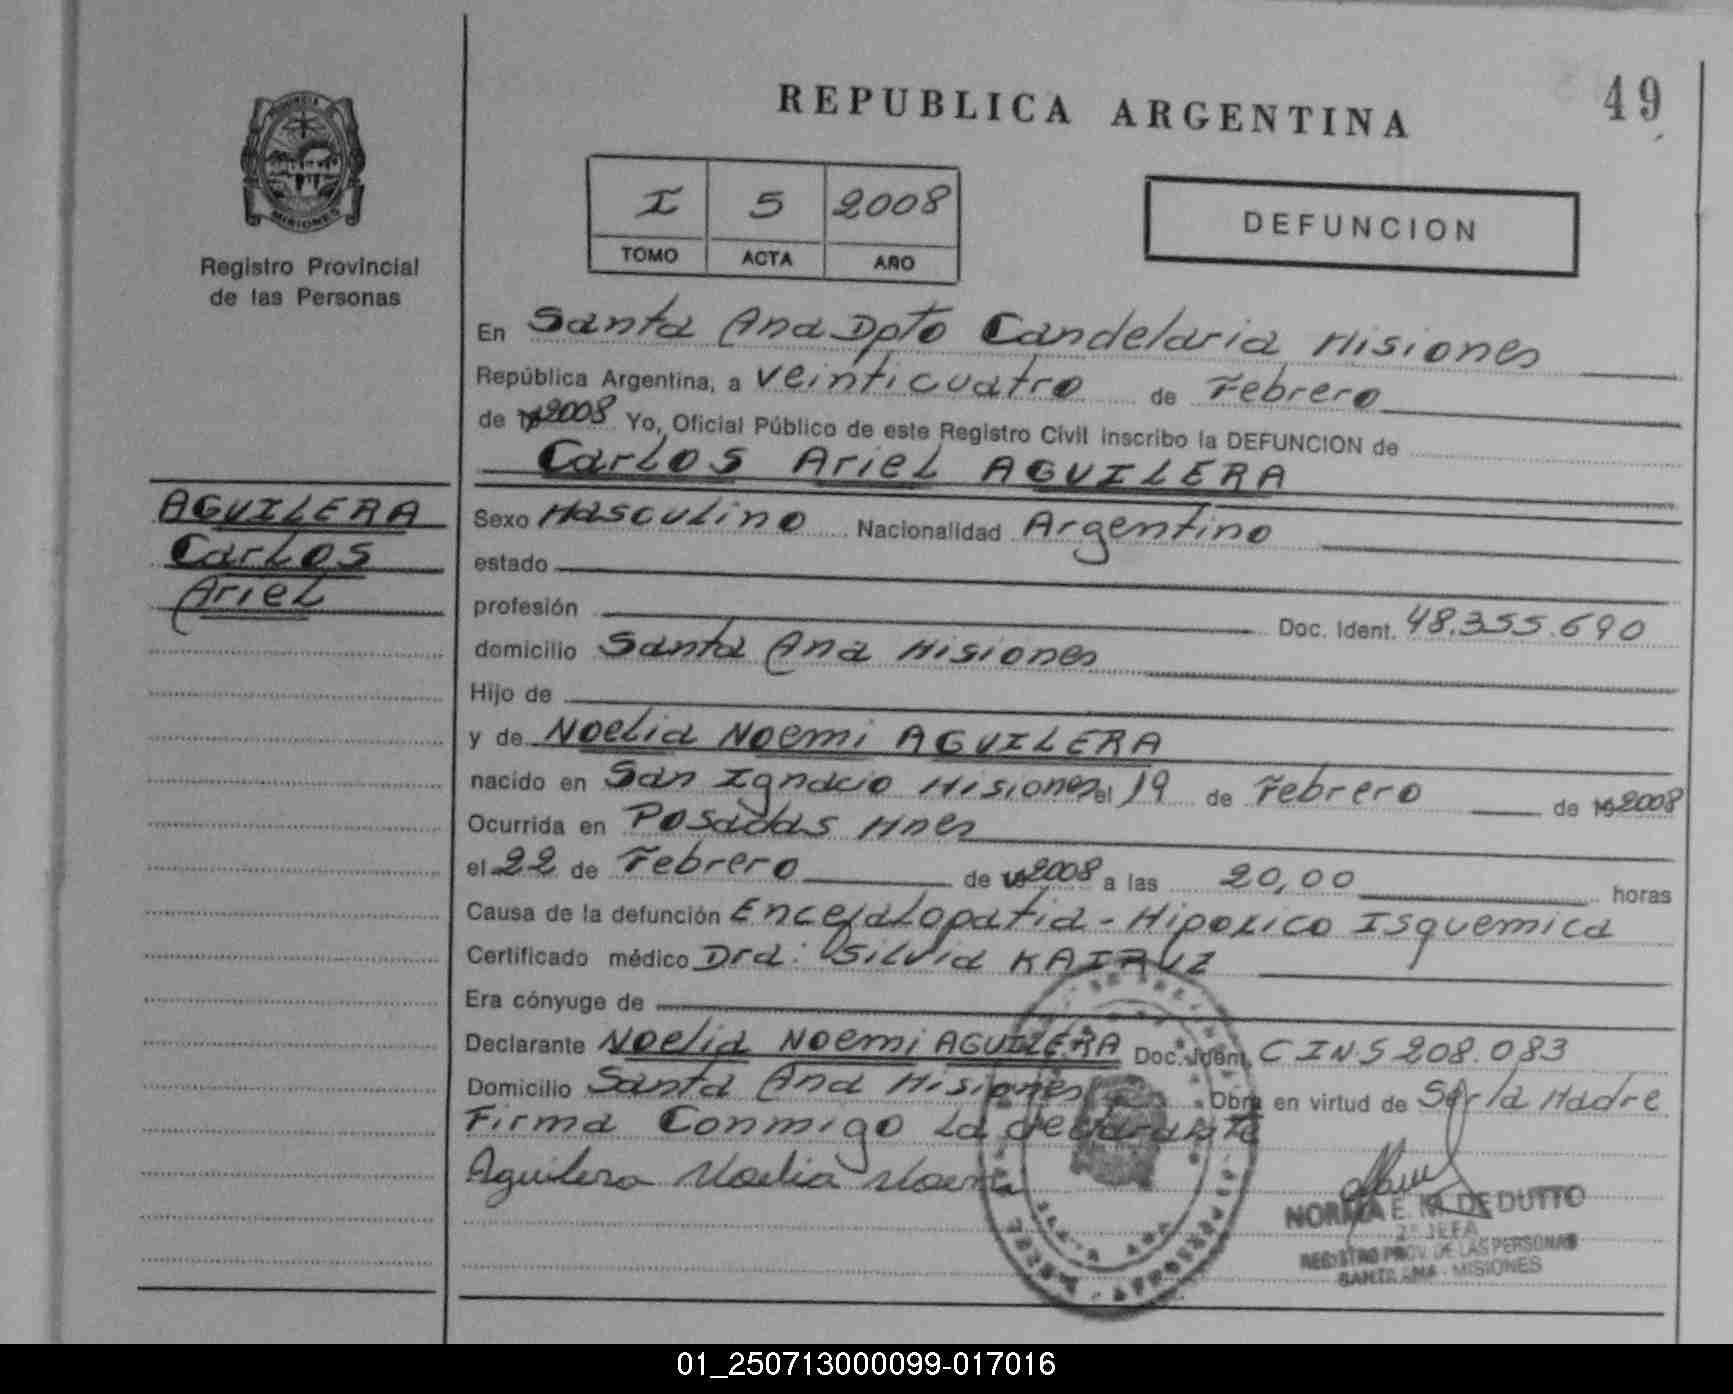 REPUBLICA ARGENTINA
49
PROVINCIA
MISIONES
Registro Provincial
de las Personas
I 5 2008
TOMO ACTA AÑO
DEFUNCION
En Santa Ana Dpto Candelaria Misiones
República Argentina, a veinticuatro de Febrero
de 19 2008 Yo, Oficial Público de este Registro Civil inscribo la DEFUNCION de
Carlos Ariel AGUILERA
AGUILERA
Carlos
Ariel
Sexo Masculino Nacionalidad Argentino
estado
profesión Doc. Ident. 48.355.690
domicilio Santa Ana Misiones
Hijo de
y de Noelia Noemi AGUILERA
nacido en San Ignacio Misiones el 19 de Febrero de 19 2008
Ocurrida en Posadas Mnes
el 22 de Febrero de 19 2008 a las 20,00 horas
Causa de la defunción Encefalopatia - Hipoxico Isquemica
Certificado médico Dra: Silvia KAIRUZ
Era cónyuge de
Declarante Noelia Noemi AGUILERA Doc. Ident. C IN.5 208.083
Domicilio Santa Ana Misiones Obra en virtud de Ser la Madre
Firma Conmigo La declarante
Aguilera Noelia Noemi
NORMA E. M. DE DUTTO
2ª JEFA
REGISTRO PROV. DE LAS PERSONAS
SANTA ANA - MISIONES
01_250713000099-017016